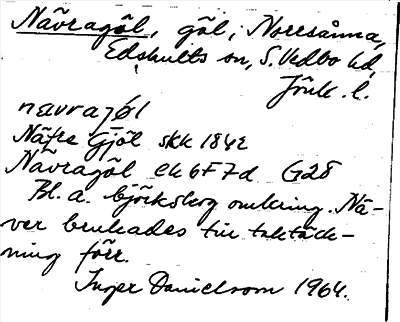 Nävragöl, göl, i Norrsånna,
Edshults sn, S. Vedbo hd,
Jönk. l.
nævragøl
Näfre Gjöl skk 1842
Nävragöl ek 6F7d G28
Bl. a. björkskog omkring. Nä-
ver brukades till taktäck-
ning förr.
Inger Danielsson 1964.